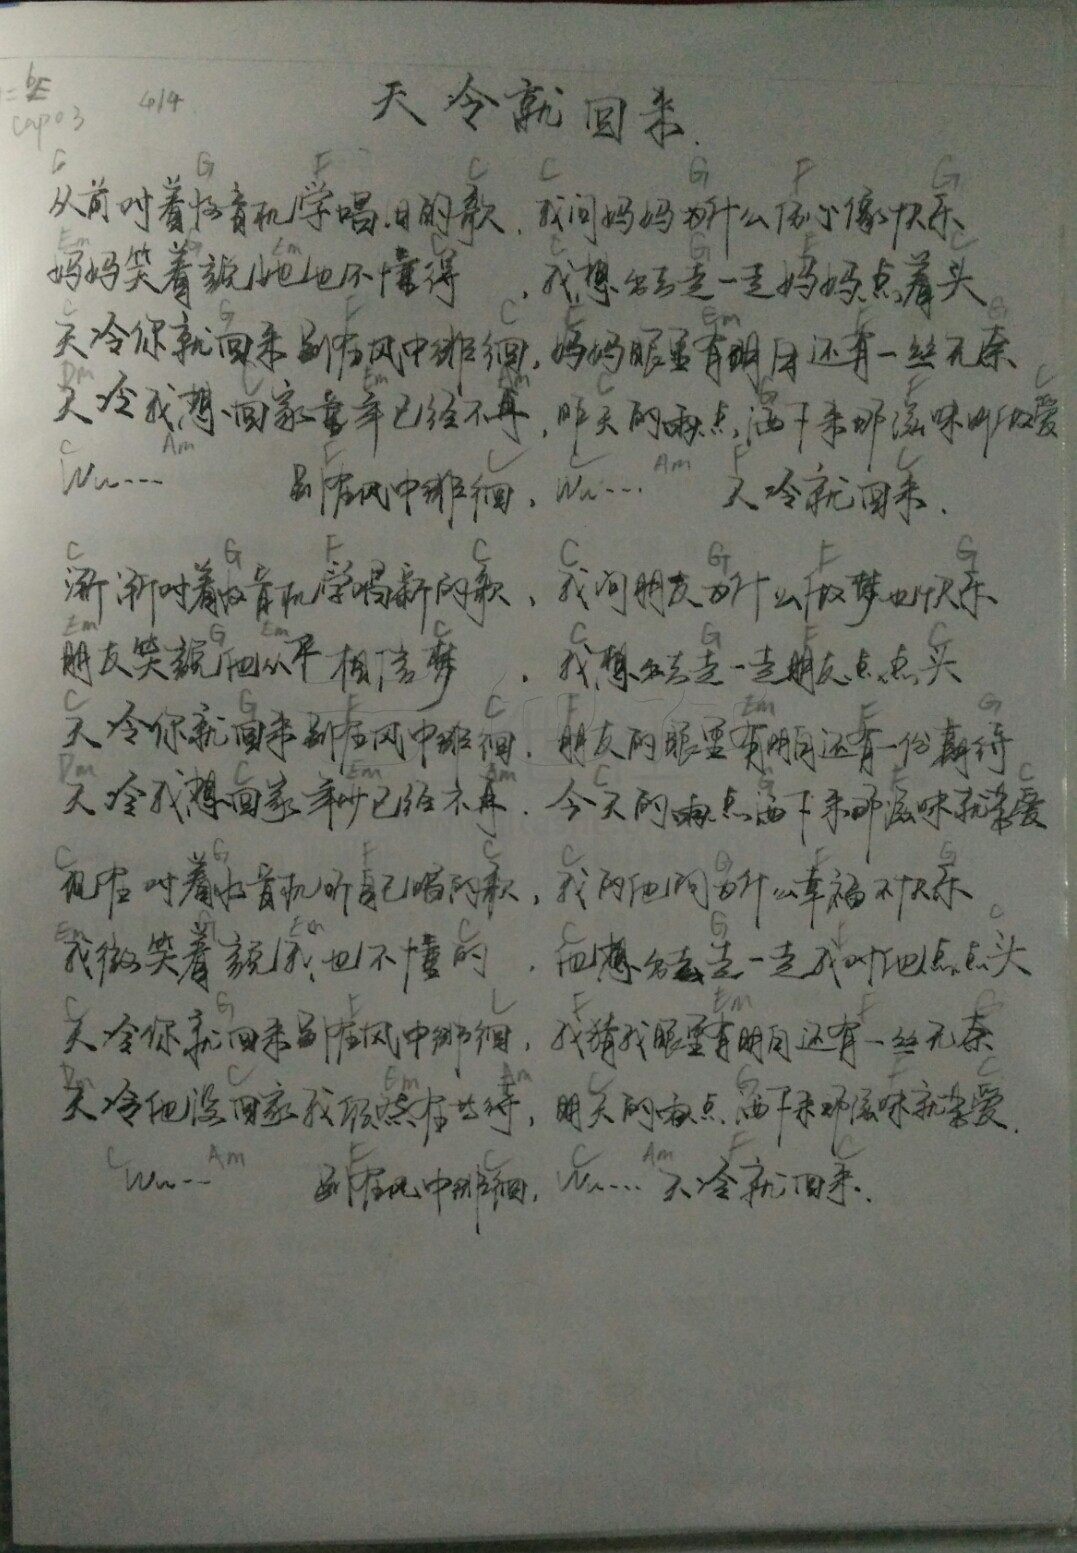 1=bE 4/4 天冷就回来.
Capo3
C G F C C G F G
从前对着收音机学唱旧的歌,我问妈妈为什么你不像不快乐
Em G Em C C G F C
妈妈笑着说她也不懂得,我想出去走一走妈妈点着头
C G F C F Em F G
天冷你就回来别在风中徘徊,妈妈眼里有明白还有一丝无奈
Dm C Em Am C G F C
天冷我想回家童年已经不再,昨天的雨点洒下来那滋味叫做爱
C Am F C C Am F C
Wu... 别在风中徘徊,Wu... 天冷就回来.
C G F C C G F G
渐渐对着收音机学唱新的歌,我问朋友为什么做梦也快乐
Em G Em C C G F C
朋友笑说他从不相信梦,我想出去走一走朋友点点头
C G F C F Em F G
天冷你就回来别在风中徘徊,朋友的眼里有明白还有一份期待
Dm C Em Am C G F C
天冷我想回家年少已经不再.今天的雨点洒下来那滋味就是爱
C G F C C G F G
现在对着收音机听自己唱的歌,我的他问为什么幸福不快乐
Em G Em C C G F C
我微笑着说我也不懂的,他想出去走一走我对他点点头
C G F C F Em F G
天冷你就回来别在风中徘徊,我猜我眼里有明白还有一丝无奈
Dm C Em Am C G F C
天冷他没回家我依然在等待,明天的雨点洒下来那滋味就是爱.
C Am F C Am F C
Wu... 别在风中徘徊,Wu... 天冷就回来.